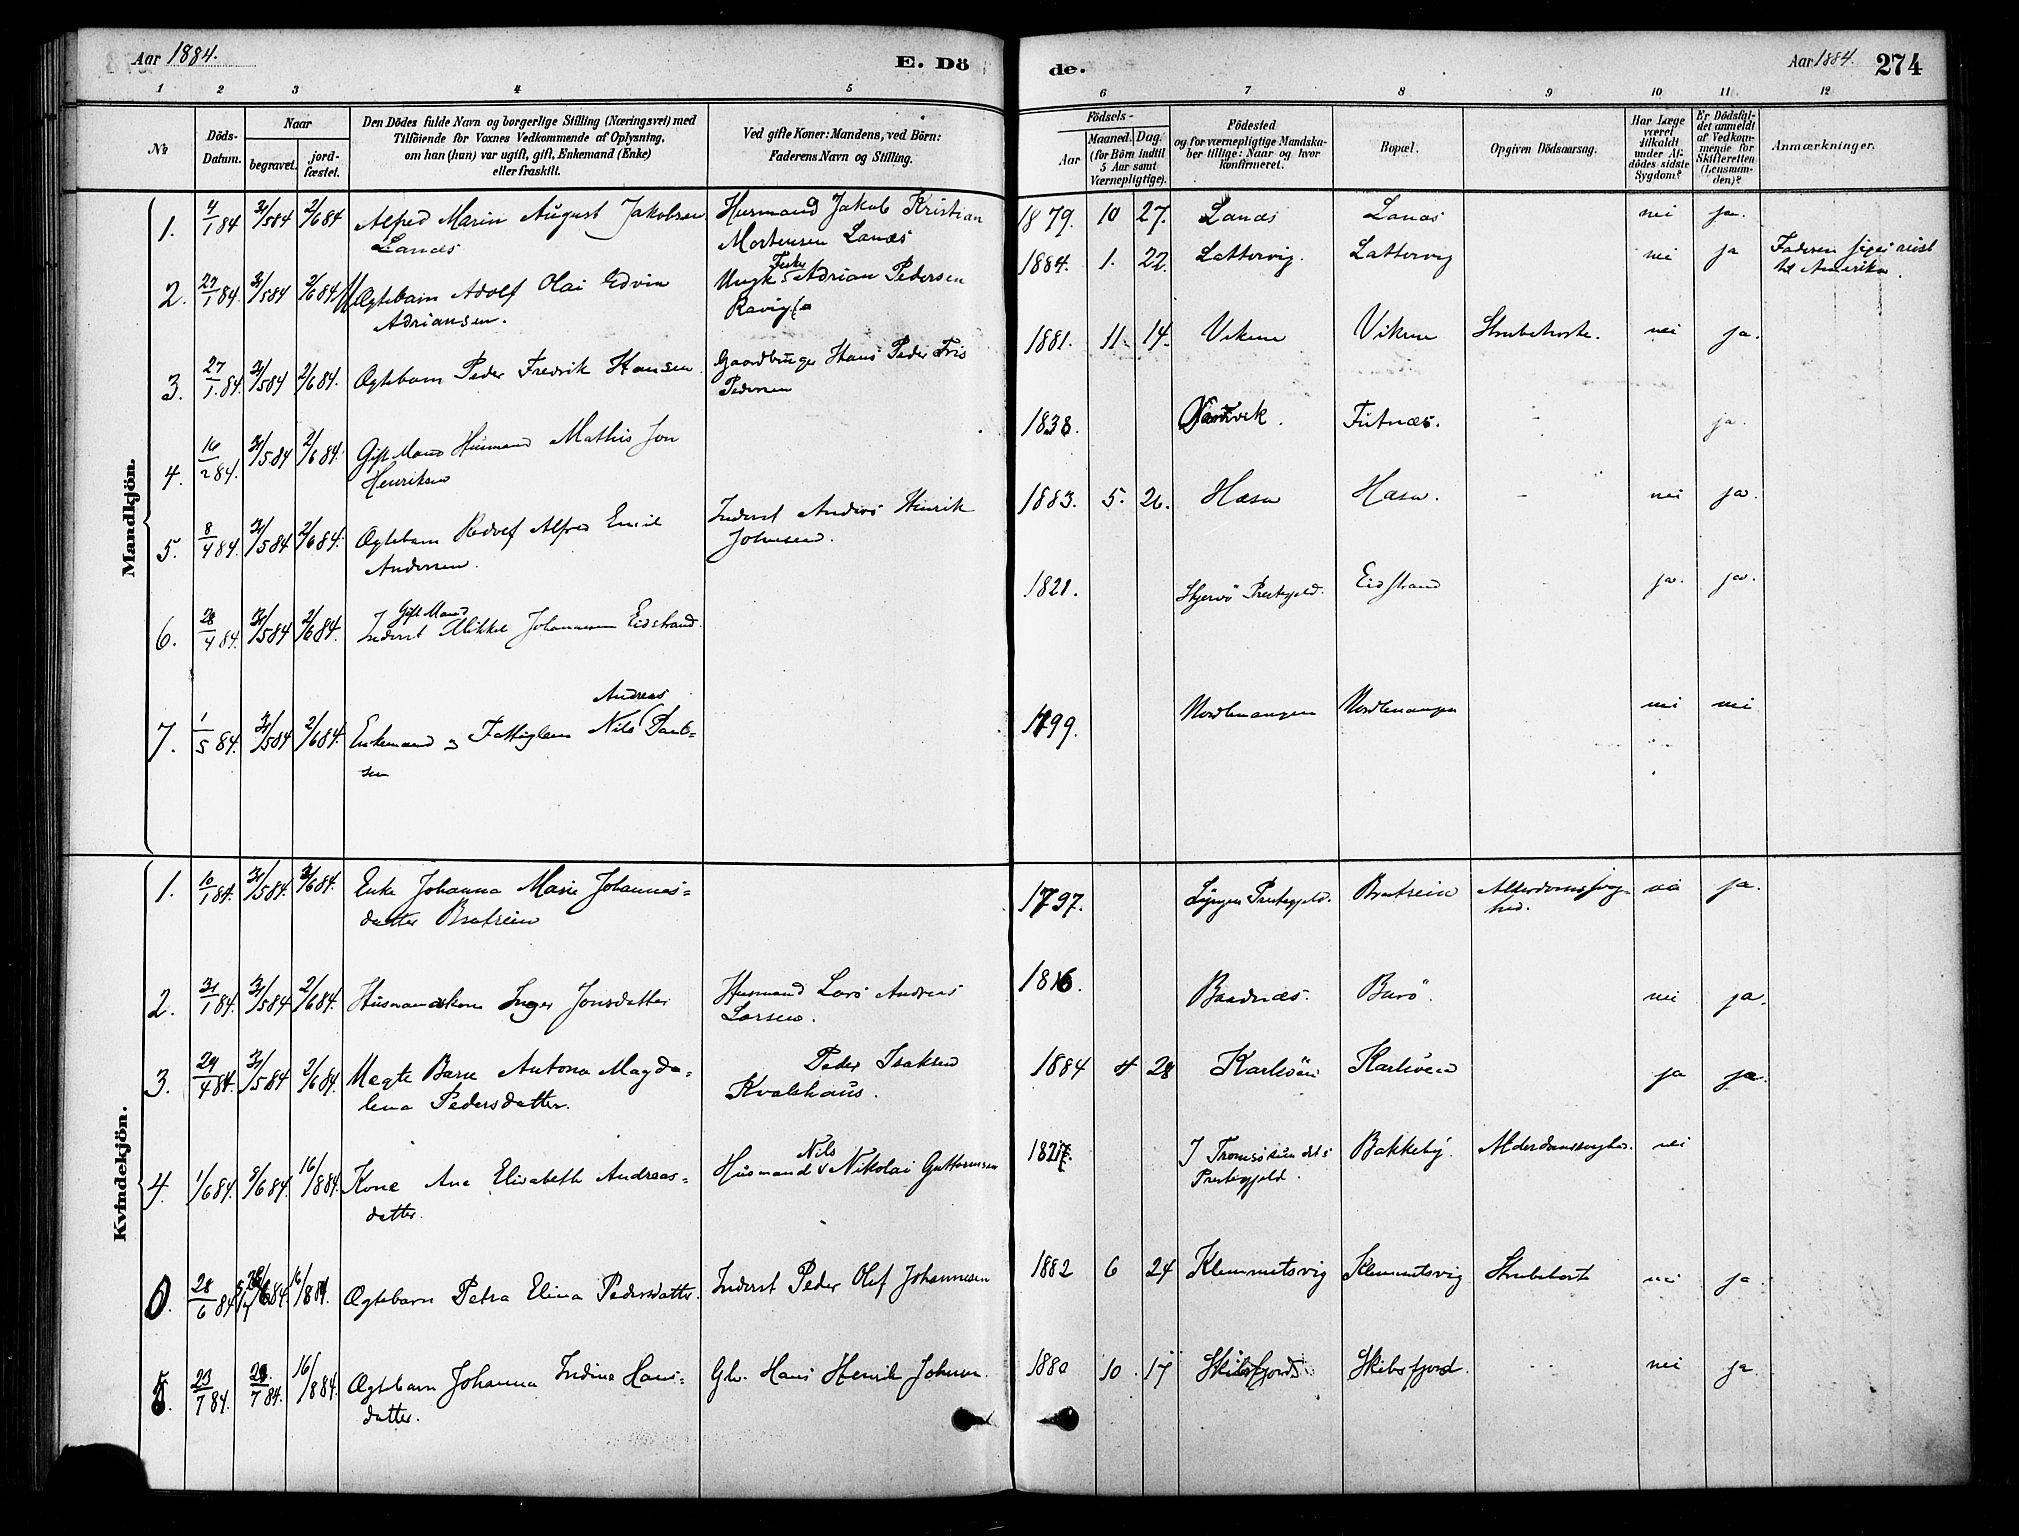 Aar 1884.
E. Dö
de.
Aar 1884.
274
1 2 3 4 5
6 7 8 9 10 11 12
№
Döds-
Datum.
Naar
begravet.
jord-
fæstet.
Den Dödes fulde Navn og borgerlige Stilling (Næringsvei) med
Tilföiende for Voxnes Vedkommende af Oplysning,
om han (hun) var ugift, gift, Enkemand (Enke)
eller fraskilt.
Ved gifte Koner: Mandens, ved Börn:
Faderens Navn og Stilling.
Födsels-
Aar
Maaned.
Dag.
(for Börn indtil
5 Aar samt
Værnepligtige).
Födested
og for værnepligtige Mandska-
ber tillige: Naar og hvor
konfirmeret.
Bopæl.
Opgiven Dödsaarsag.
Har Læge
været
tilkaldt
under Af-
dödes sidste
Sygdom?
Er Dödsfal-
det anmeldt
af Vedkom-
mende for
Skifteretten
(Lensman-
den)?
Anmærkninger.
Mandkjön.
1. 4/1 84 31/5 84 2/6 84 Alfred Marin August Jakobsen
Lanæs
Husmand Jakob Kristian
Mortensen Lanæs
1879. 10 27. Lanæs Lanæs nei ja.
2. 27/1 84 31/5 84 2/6 84 Uægtebarn Adolf Olai Edvin
Adriansen.
Ungk. Fisker Adrian Pedersen
1884. 1. 22. Lattervig. Lattervig nei ja Faderen reist
til Amerika.
3. 27/1 84. 31/5 84 2/6 84. Ægtebarn Peder Fredrik Hansen.
Gaardbruger Hans Peder
Pedersen
1881. 11. 14. Viken Viken Strubehoste. nei ja.
4. 16/2 84. 31/5 84 2/6 84. Gift Mand Husmand Mathis Jon
Henriksen
1838. Futnæs. - ja.
5. 8/4 84. 31/5 84 2/6 84. Ægtebarn Alfred Emil
Andersen.
Inderst Anders Hinrik
Johnsen.
1883. 5. 26. - nei ja.
6. 28/4 84. 31/5 84 2/6 84. Gift Mand
Inderst Mikkel Johannesen Eidstrand.
1821. Skjervö Prestegjeld. Eidstrand ja. ja.
7. 1/5 84. 31/5 84 2/6 84. Enkemand og Fattiglem Nils Andreas Paul-
sen
1799. Nordlenangen Nordlenangen nei nei
Kvindekjön.
1. 10/1 84. 31/5 84. 2/6 84. Enke Johanna Marie Johannes-
datter Bratrein
1797. Lyngen Prestegjeld. Bratrein Alderdomssvag-
hed. nei ja.
2. 31/1 84. 31/5 84 2/6 84. Husmandskone Inger Jonsdatter
Husmand Lars Andreas
Larsen.
1816. Baadnæs. nei ja.
3. 29/4 84. 31/5 84 2/6 84. Uægte Barn Antona Magda-
lena Pedersdatter.
Peder Isaksen
Kvalshaus.
1884 4 28 Karlsöen Karlsöen ja ja.
4. 1/6 84. 8/6 84. 16/8 84. Kone Ane Elisabeth Andreas-
datter.
Husmand Nils Nikolai Guttormsen
I Tromsösundets
Prestegjeld.
Bakkeby. Alderdomssvaghed. nei
28/6 84 16/8 84 Ægtebarn Petra Elina Pedersdatter.
Inderst Peder Olef Johannesen
1882 6 24 Klemmetsvig Klemmetsvig Strubehoste nei ja.
23/7 84. 7 84. 16/8 84. Ægtebarn Johanna Indina Hans-
datter.
Gbr. Hans Henrik Johnsen.
1880 10 17 Skibsfjord Skibsfjord. nei ja.